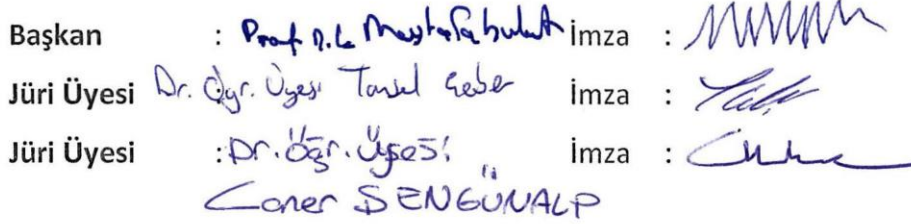 Başkan : Prof. Dr. Mustafa bulut İmza :
Jüri Üyesi Dr. Öğr. Üyesi Tansel İmza :
Jüri Üyesi : Dr. Öğr. Üyesi İmza :
Caner ŞENGÜNALP